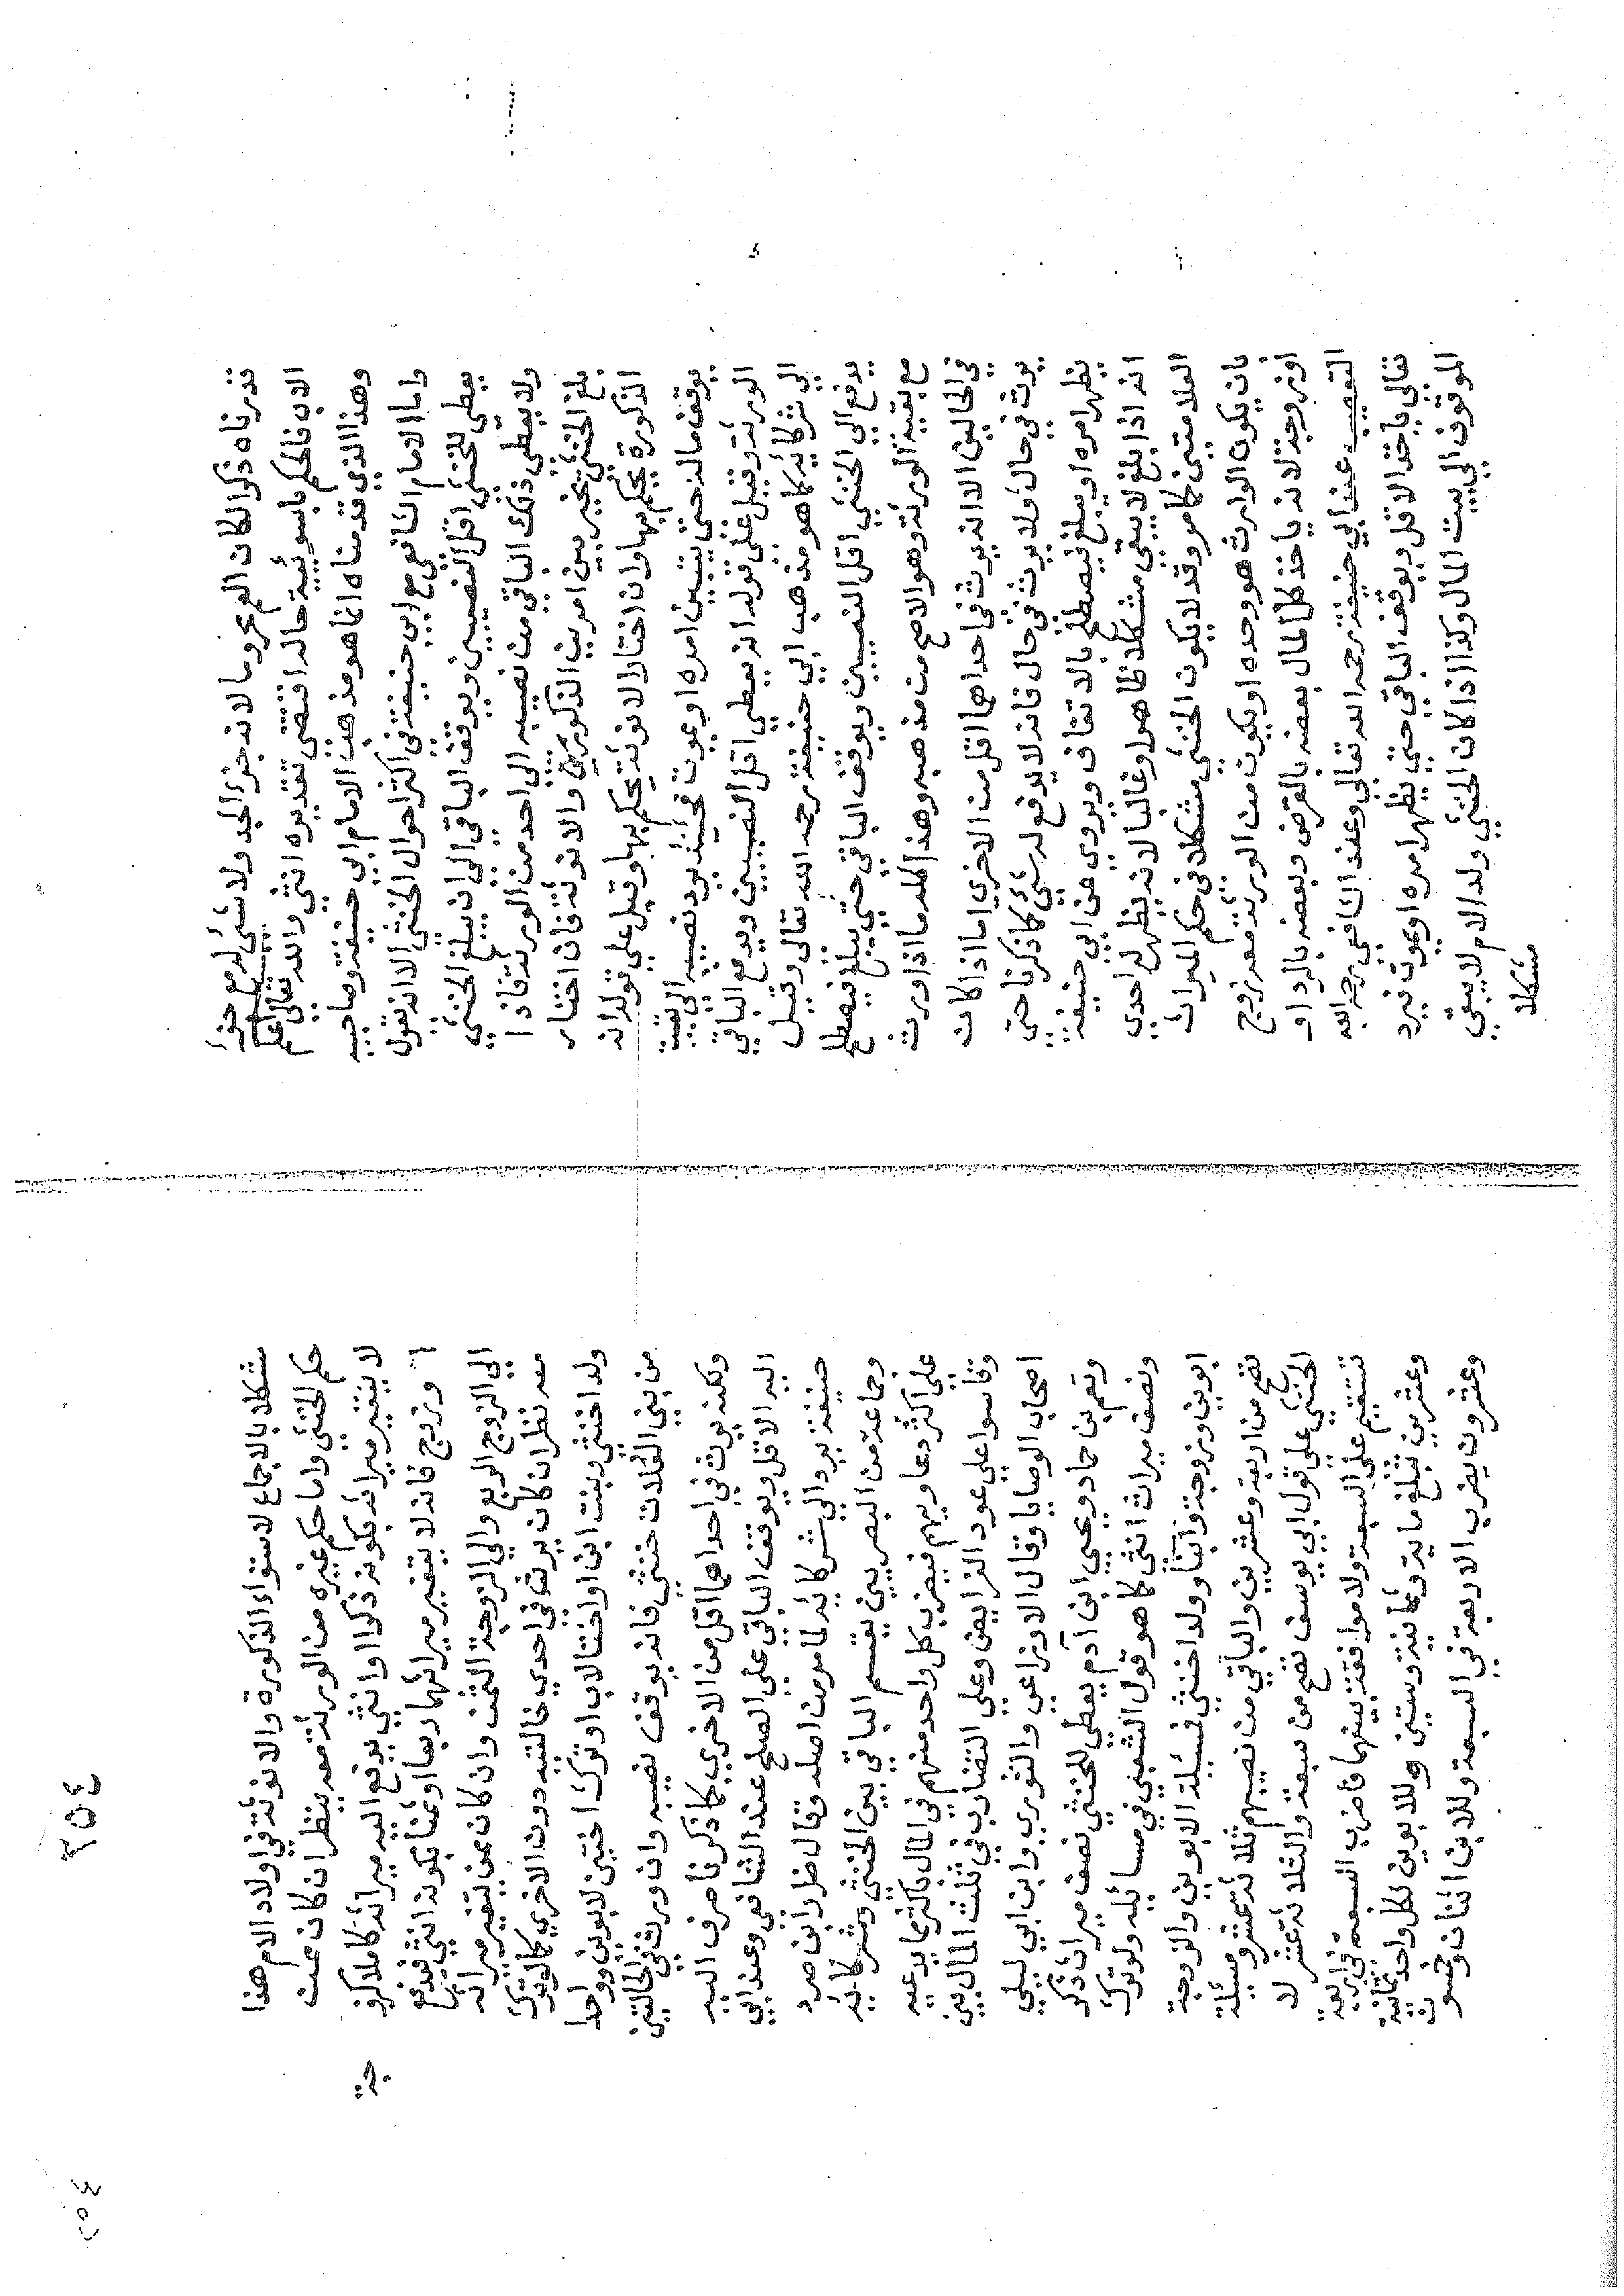 قدرناه ذكرا لكان العم محروما لانه جزء الجد ولا شئ له مع جزء
الاب فالحكم باسوئية حاله اقتضى تقديره انثى والله تعالى اعلم
وهذا الذي قدمناه انما هو مذهب الامام ابي حنيفة وصاحبيه
واما الامام الشافعي مع ابي حنيفة في اكثر احوال الخنثى الا انه يقول
يعطى للخنثى اقل النصيبين ويوقف الباقي الى ان يبلغ الخنثى
ولا يعطى ذلك الباقي من نصيبه الى احد من الورثة فاذا
بلغ الخنثى تخير بين امرين الذكورة والانوثة فان اختار
الذكورة يحكم بها وان اختار الانوثة يحكم بها وقيل على قوله انه
يوقف ماله حتى يتبين امره او يموت فحينئذ يرد نصيبه الى بقية
الورثة وقيل على قوله انه يعطى اقل النصيبين ويدفع الباقي
الى شركائه كما هو مذهب ابي حنيفة رحمه الله تعالى وقيل
يدفع الى الخنثى اقل النصيبين ويوقف الباقي حتى يبلغ فيصطلح
مع بقية الورثة وهو الاصح من مذهبه وهذا كله ما اذا ورث
في الحالين الا انه يرث في احداهما اقل من الاخرى اما اذا كان
يرث في حال ولا يرث في حال فانه لا يدفع له شئ كما ذكرنا حتى
يظهر امره او يبلغ فيصطلح بالاتفاق ويروى عن ابي حنيفة
انه اذا بلغ لا يبقى مشكلا ظاهرا وغالبا لانه يظهر له احدى
العلامتين كما مر وقد لا يكون الخنثى مشكلا في حكم الميراث
بان يكون الوارث هو وحده او يكون من الورثة معه زوج
او زوجة لانه ياخذ كل المال بعضه بالفرض وبعضه بالرد او
التعصيب عند ابي حنيفة رحمه الله تعالى وعند الشافعي رحمه الله
تعالى ياخذ الاقل ويوقف الباقي حتى يظهر امره او يموت فيرد
الموقوف الى بيت المال وكذا اذا كان الخنثى ولد الام لا يبقى
مشكلا
مشكلا بالاجماع لاستواء الذكورة والانوثة في اولاد الام هذا
حكم الخنثى واما حكم غيره من الورثة معه ينظر ان كان ممن
لا يتغير ميراثه بكونه ذكرا او انثى يدفع اليه ميراثه كاملا كزو
جة
وزوج فانه لا يتغير ميراثهما ربعا او ثمنا بكونه انثى فيدفع
الى الزوج الربع والى الزوجة الثمن وان كان ممن يتغير ميراثه
معه نظر ان كان يرث في احدى حالتيه دون الاخرى كما لو ترك
ولد اخنثى وبنت ابن او اختا لاب او ترك اختين لابوين وواحدا
من بني العلات خنثى فانه يوقف نصيبه وان ورث في الحالتين
ولكنه يرث في احداهما اقل من الاخرى كما ذكرنا صرف اليه
اليه الاقل ويوقف الباقي على الصلح عند الشافعي وعند ابي
حنيفة يرد الى شركائه لما مر من اصله وقال ضرار ابن صرد
وجماعة من البصريين يقسم الباقي بين الخنثى وشركائه
على اكثر دعاويهم فيضرب كل واحد منهم في المال باكثر ما يدعيه
وقاسوا على عود الفرايض وعلى التضارب في ثلث المال بين
اصحاب الوصايا وقال الاوزاعي والثوري وابن ابي ليلى
ونعيم بن حماد ويحيى ابن آدم يعطى للخنثى نصف ميراث ذكر
ونصف ميراث انثى كما هو قول الشعبي في مسائله ولو ترك
ابوين وزوجة وابنا وولد اخنثى فمسئلة الابوين والزوجة
تصح من اربعة وعشرين والباقي من نصيبهم ثلاثة عشر ومسئلة
الخنثى على قول ابي يوسف تصح من سبعة والثلاثة عشر لا
تستقيم على السبعة ولا موافقة بينهما فاضرب السبعة في اربعة
وعشرين تبلغ ماية وثمانية وستين وللابوين لكل واحد ثمانية
وعشرون يضرب الاربعة في السبعة وللابن اثنان وخمسون
٣٥٤
٢٥٤